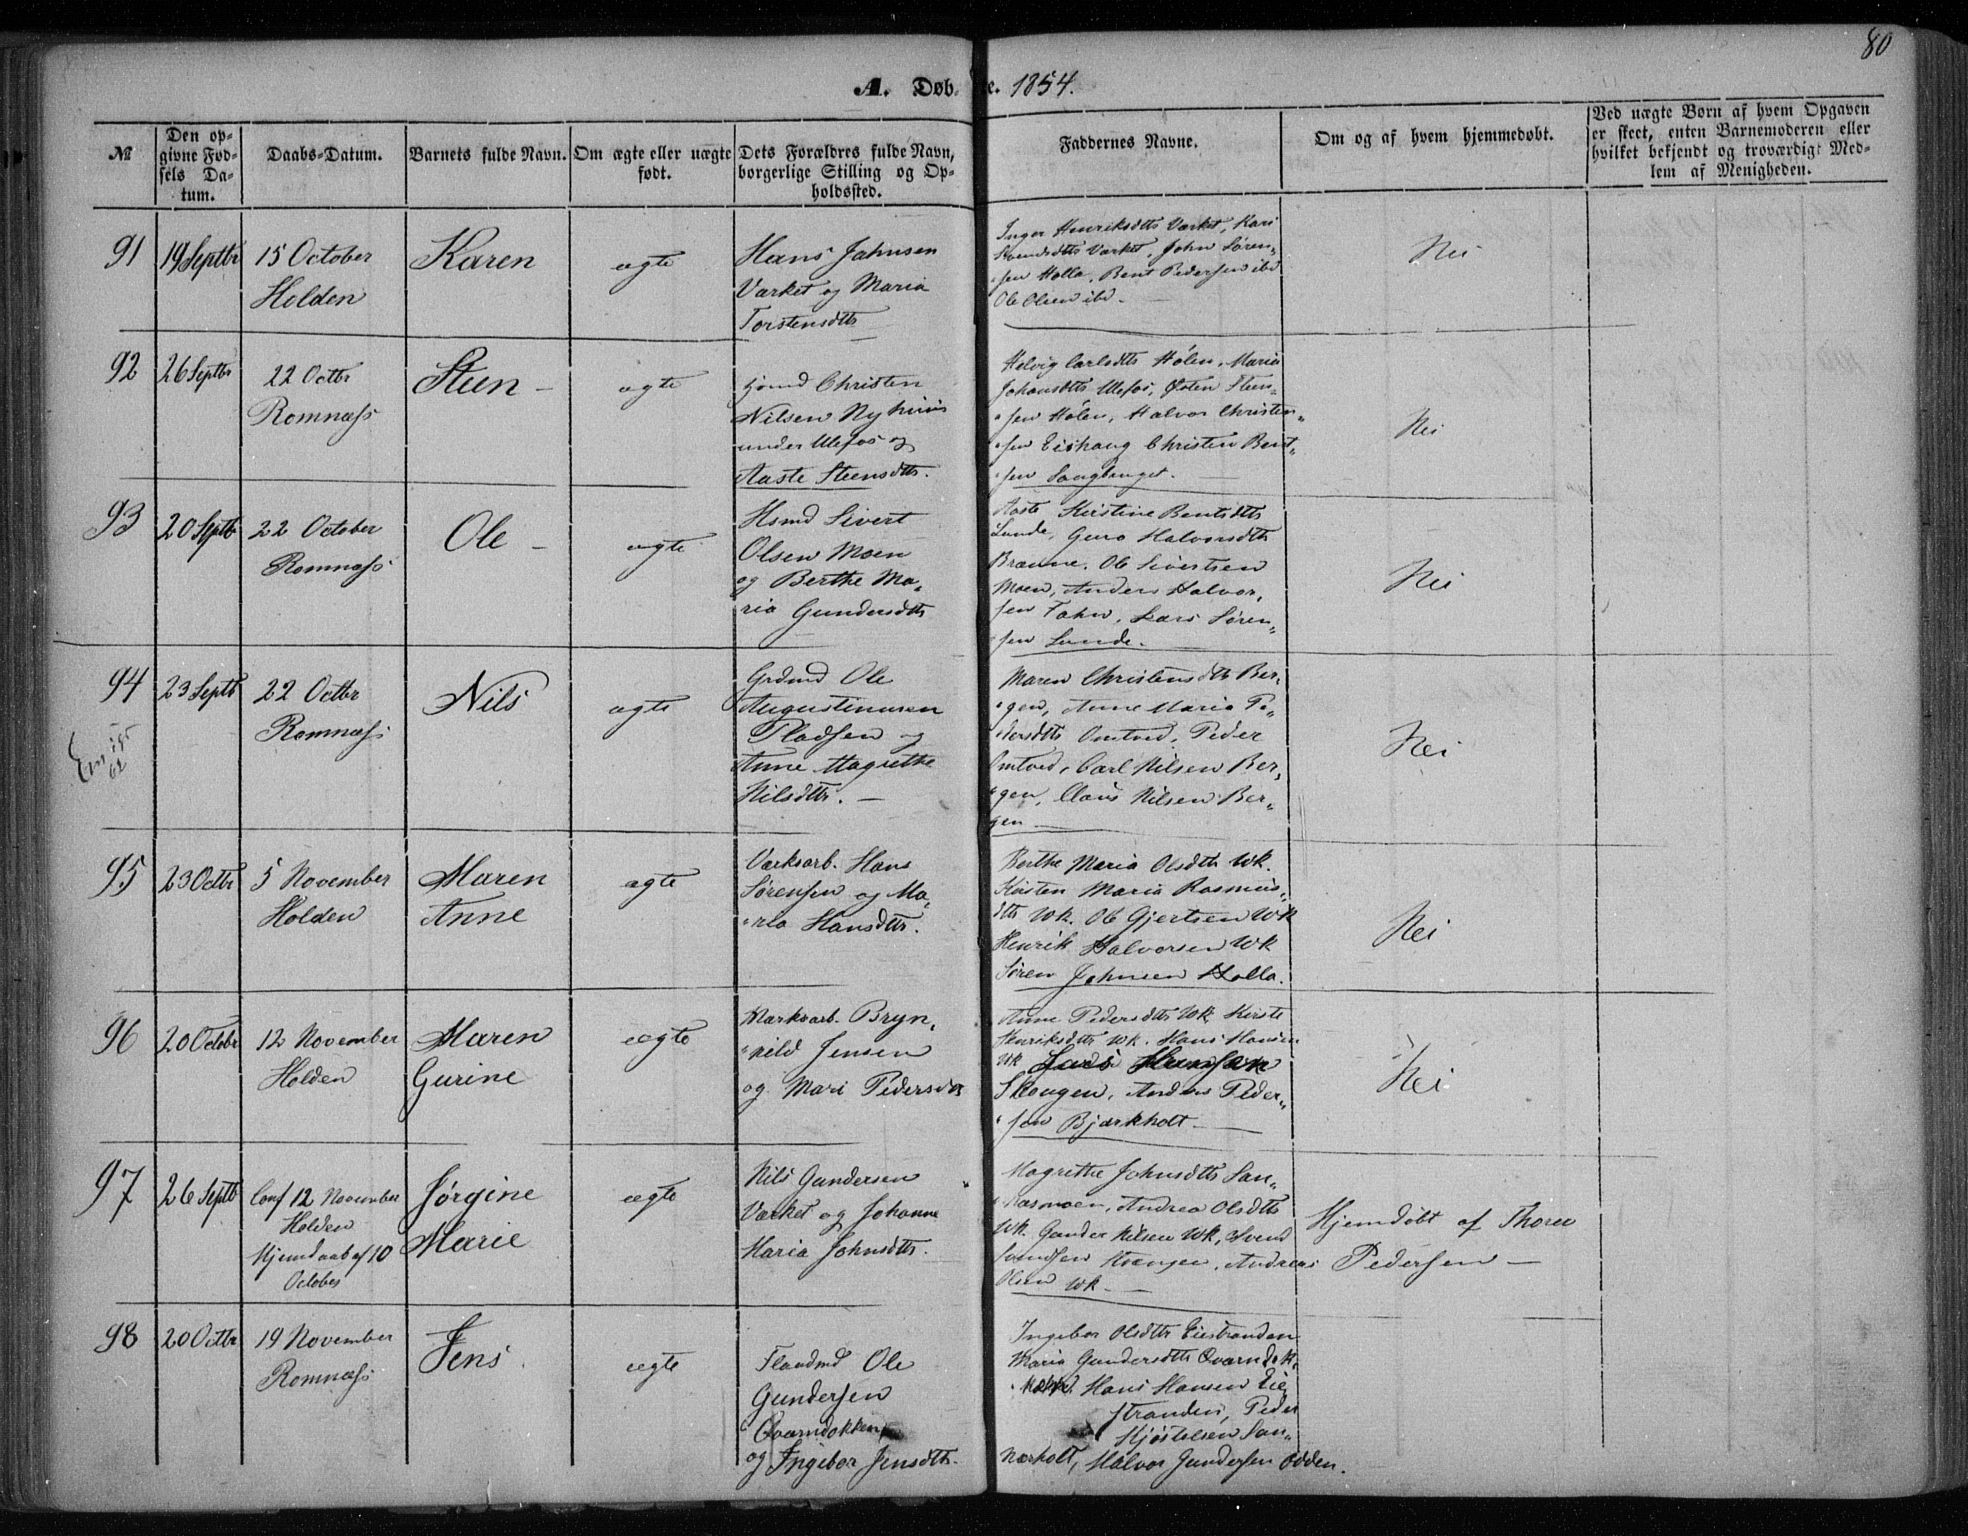 80
A. Døbte. 1854.
№
Den opgivne Fødsels Datum.
Daabs-Datum.
Barnets fulde Navn.
Om ægte eller uægte født.
Dets Forældres fulde Navn, borgerlige Stilling og Opholdssted.
Faddernes Navne.
Om og af hvem hjemmedøbt.
Ved uægte Børn af hvem Opgaven er skeet, enten Barnemoderen eller hvilket bekjendt og troværdigt Medlem af Menigheden.
91
19 Septbr
15 October
Holden
Karen
ægte
Hans Jahnsen
Værket og Maria
Torstensdtr
Inger Henriksdtr Værket, Kari
Svendsdtr Værket, John Søren-
sen Holla, Bent Pedersen ibd
Ole Olsen ibd.
Nei
92
26 Septbr
22 Octbr
Romnæss
Steen -
ægte
Christen
Nilsen Nyhuus
under Ulefos og
Aaste Steensdtr.
Helvig Carlsdtr Hølen, Maria
Johansdtr Ulefos, Østen Steen-
sen Hølen, Halvor Christen-
sen Eishaug Christen Bent-
sen
Nei
93
20 Septb
22 October
Romnæss
Ole -
ægte
Hsmd Sivert
Olsen Moen
og Berthe Ma-
ria Gundersdtr
Aaste Kirstine Bentsdtr
Lunde, Guro Halvorsdtr
Brænne. Ole Sivertsen
Moen, Anders Halvor-
sen Fahn, Lars Søren-
sen Lunde.
Nei
94
23 Septb
22 Octbr
Romnæss
Nils
ægte
Grdmd Ole
Augustinusen
Pladsen og
Anne Magrethe
Nilsdtr. -
Maren Christensdtr Ber-
gen, Anne Maria Pe-
dersdtr Omtved, Peder
Omtved, Carl Nilsen Ber-
gen, Claus Nilsen Ber-
gen
Nei
95
23 Octbr
5 November
Holden
Maren
Anne
ægte
Værksarb. Hans
Sørensen og Ma-
ria Hansdtr.
Berthe Maria Olsdtr Wk.
Kirsten Maria Rasmus-
dtr Wk. Ole Gjertsen Wk
Henrik Halvorsen Wk
Søren Johnsen Holla.
Nei
96
20 Octobr
12 November
Holden
Maren
Gurine
ægte
Værksarb. Bryn-
hild Jensen
og Mari Pedersdtr
Anne Pedersdtr Wk Kirsti
Henriksdtr Wk. Hans Hansen
Wk
Skougen, Anders Peder-
sen Bjærkholt
Nei
97
26 Septb
Conf 12 November
Holden
Hjemdaab af 10
October
Jørgine
Marie
ægte
Nils Gundersen
Værket og Johanne
Maria Johnsdtr.
Magrethe Johnsdtr San-
næsmoen, Andrea Olsdtr
Wk. Gunder Nilsen Wk, Svend
Svendsen, Andreas
Olsen Wk. -
Hjemdøbt af Thore
Pedersen -
98
20 Octbr
19 November
Romnæss
Jens.
ægte
Ole
Gundersen
Qvarndokken
og Ingebor Jensdtr.
Ingebor Olsdtr Eiestranden
Maria Gundersdtr Qvarndok-
ken. Hans Hansen Eie
stranden, Peder
Kjøstelsen San-
næsholt, Halvor Gundersen Odden.